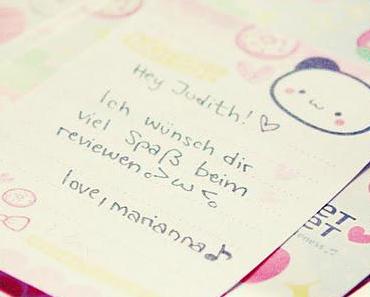 Hey Judith! ♡
Ich wünsch dir
viel Spaß beim
reviewen >w<
love, marianna ♪